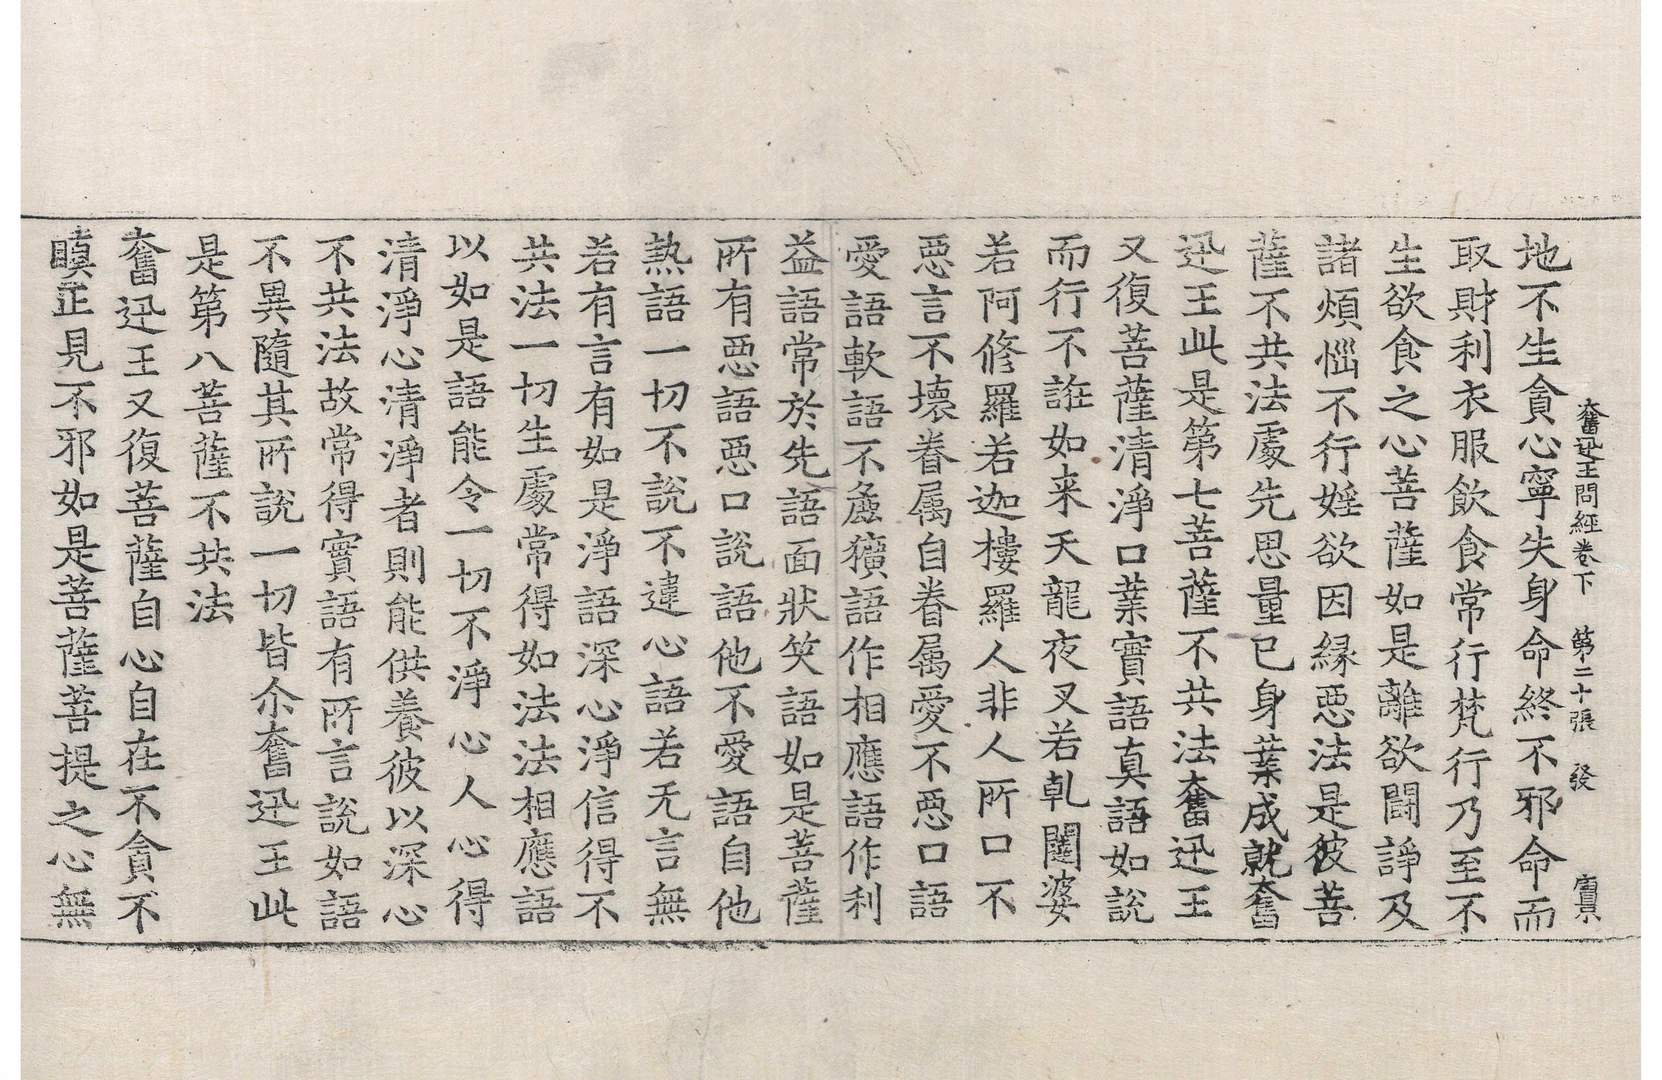 奮迅王問經卷下　第二十張　發　賔
地不生貪心寧失身命終不邪命而
取財利衣服飲食常行梵行乃至不
生欲食之心菩薩如是離欲鬪諍及
諸煩惱不行婬欲因縁惡法是彼菩
薩不共法處先思量已身業成就奮
迅王此是第七菩薩不共法奮迅王
又復菩薩清淨口業實語真語如說
而行不誑如来天龍夜叉若乹闥婆
若阿修羅若迦樓羅人非人所口不
惡言不壞眷属自眷属愛不惡口語
愛語軟語不麁獷語作相應語作利
益語常於先語面狀笑語如是菩薩
所有惡語惡口說語他不愛語自他
熱語一切不說不違心語若无言無
若有言有如是淨語深心淨信得不
共法一切生處常得如法法相應語
以如是語能令一切不淨心人心得
清淨心清淨者則能供養彼以深心
不共法故常得實語有所言說如語
不異隨其所說一切皆尒奮迅王此
是第八菩薩不共法
奮迅王又復菩薩自心自在不貪不
瞋正見不邪如是菩薩菩提之心無